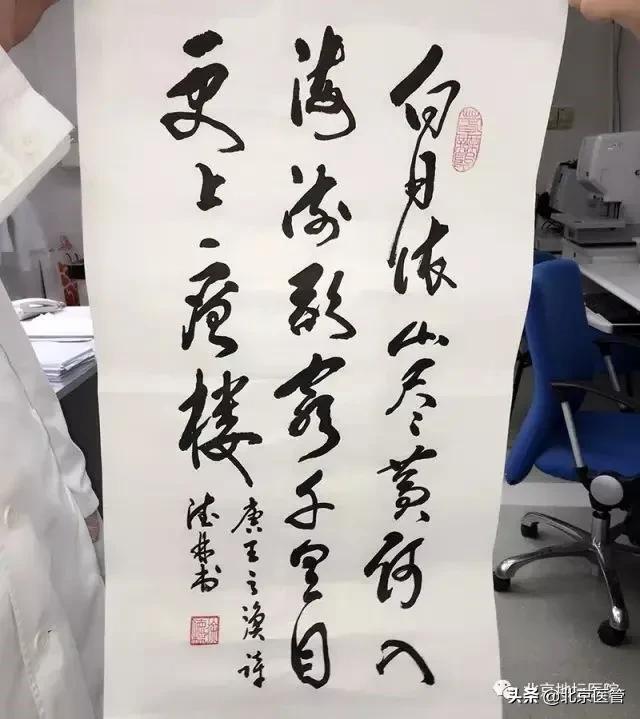 白日依山尽黄河入
海流欲穷千里目
更上一层楼
唐王之涣诗
北京地坛医院
头条 @北京医管